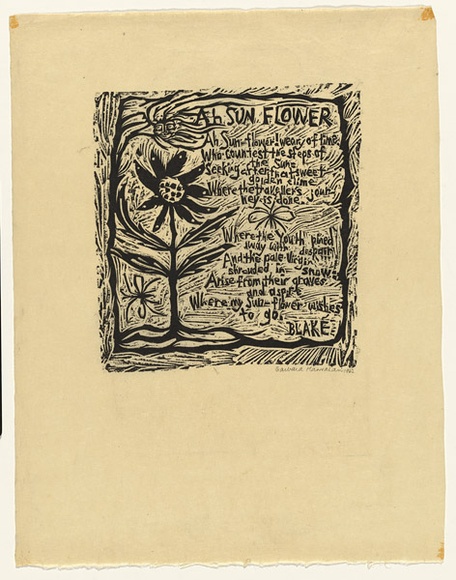 Ah SUN FLOWER
Ah Sun-flower! weary of time,
Who countest the steps of
the Sun:
Seeking after that sweet
golden clime
Where the traveller's jour-
ney is done.
Where the Youth pined
away with
And the pale Virgin
shrouded in snow:
Arise from their graves
and aspire
Where my Sun-flower wishes
to go.
BLAKE
Barbara Hanrahan